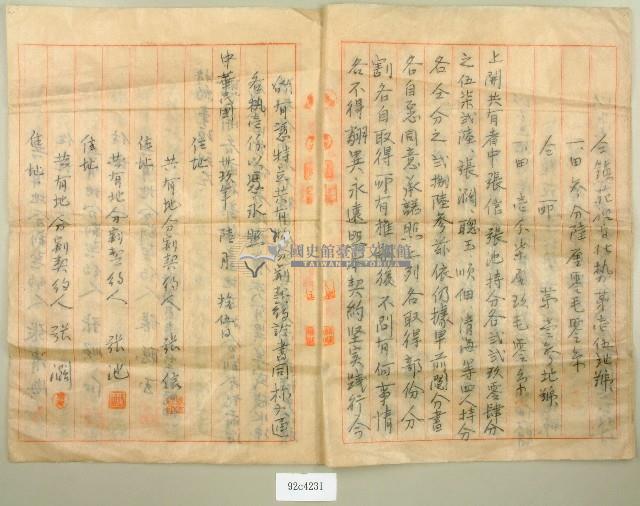 仝鎮苑
第壱伍地號
一田參分陸厘零毛零糸
仝 所 第壱參地號
一田 壱分柒厘玖毛零糸
上開共有者中張信張池持分各貳貳玖零肆分
之伍柒貳陸、張瀾、聰玉、順、佃、清海等四人持分
各仝分之貳捌陸參茲依仍據早前鬮分書
各自意同意承諾照上列各取得部份分
割各自取得所有推
後不問有何事情
各不得翻異永遠照
契約堅實踐行今
欲有憑特立共有地分割契約證書同樣六通
各執壱份以憑永照
中華民國 卅玖年 陸月 拾伍日
住址
共有地分割契約人 張信
住址
共有地分割契約人 張池
住址
共有地分割契約人 張瀾
住址
國史館臺灣文獻館
TAIWAN HISTORICA
92c4231